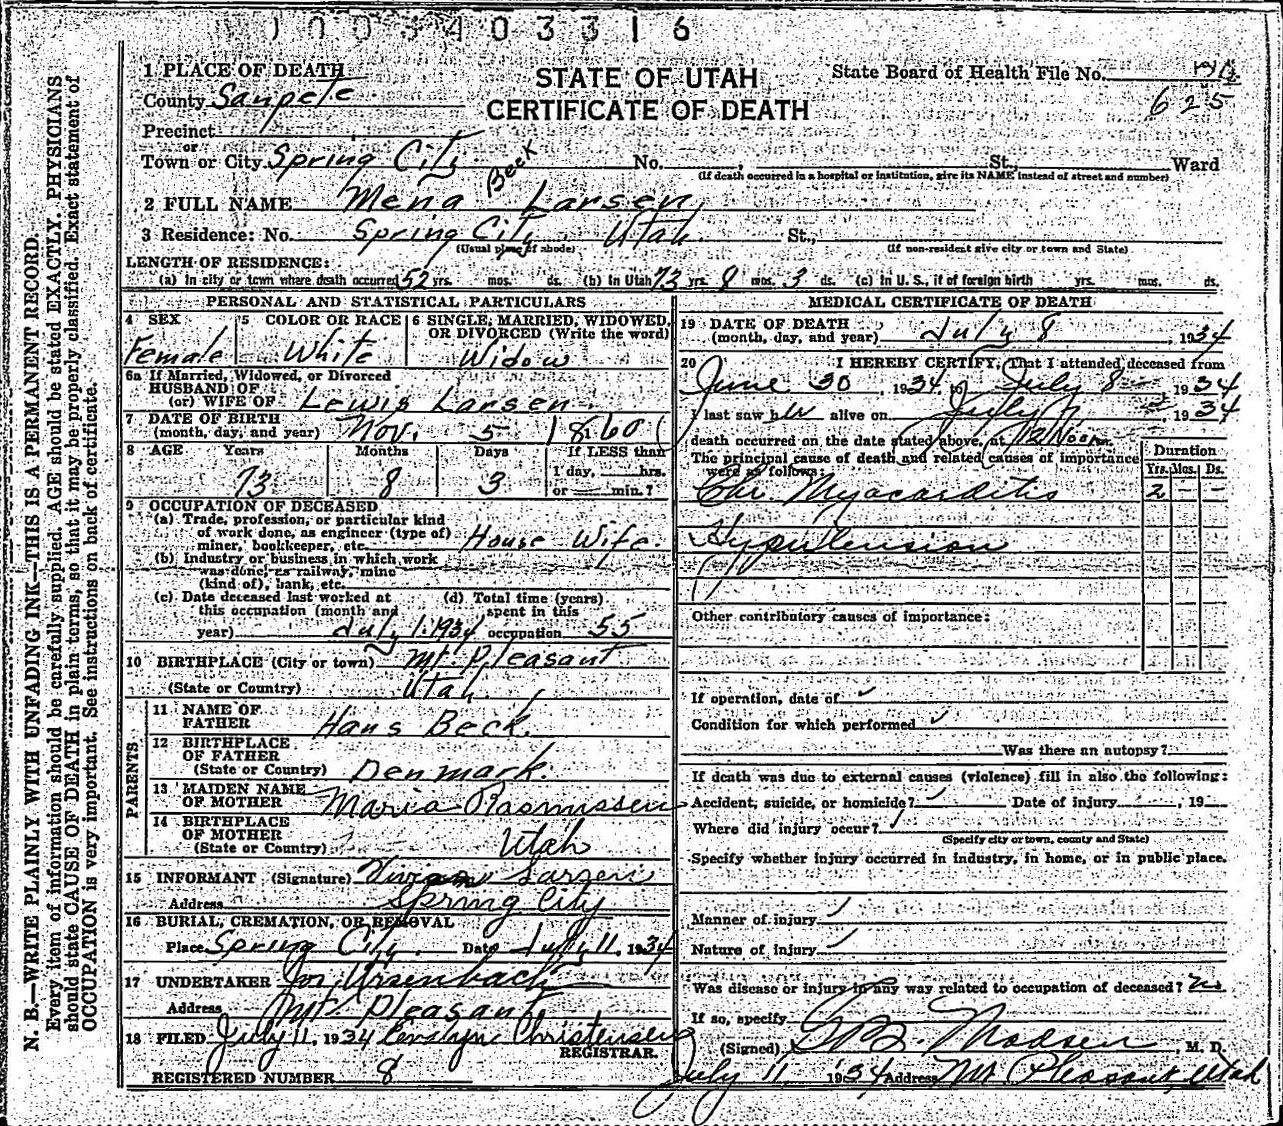 1003403316
1 PLACE OF DEATH
STATE OF UTAH
CERTIFICATE OF DEATH
State Board of Health File No.
625
County Sanpete
Precinct
or
Town or City Spring City No. , St., Ward
(If death occurred in a hospital or institution, give its NAME instead of street and number)
2 FULL NAME Mena Beck Larsen
3 Residence: No. Spring City Utah St.,
(Usual place of abode) (If non-resident give city or town and State)
LENGTH OF RESIDENCE:
(a) in city or town where death occurred 52 yrs. mos. ds. (b) In Utah 73 yrs. 8 mos. 3 ds. (c) in U. S., if of foreign birth yrs. mos. ds.
PERSONAL AND STATISTICAL PARTICULARS
4 SEX
Female
5 COLOR OR RACE
White
6 SINGLE, MARRIED, WIDOWED,
OR DIVORCED (Write the word)
Widow
6a If Married, Widowed, or Divorced
HUSBAND OF
(or) WIFE OF Lewis Larsen
7 DATE OF BIRTH
(month, day, and year) Nov. 5 1860
8 AGE Years Months Days If LESS than
1 day, hrs.
73 8 3 or min.?
9 OCCUPATION OF DECEASED
(a) Trade, profession, or particular kind
of work done, as engineer (type of)
miner, bookkeeper, etc. House Wife
(b) Industry or business in which work
was done, as railway, mine
(kind of), bank, etc.
(c) Date deceased last worked at
this occupation (month and
year) July 1 1934
(d) Total time (years)
spent in this
occupation 55
10 BIRTHPLACE (City or town) Mt. Pleasant
(State or Country) Utah
PARENTS
11 NAME OF
FATHER Hans Beck
12 BIRTHPLACE
OF FATHER
(State or Country) Denmark
13 MAIDEN NAME
OF MOTHER Maria Rasmussen
14 BIRTHPLACE
OF MOTHER
(State or Country) Utah
15 INFORMANT (Signature) Larsen
Address Spring City
16 BURIAL, CREMATION, OR REMOVAL
Place Spring City Date July 11, 1934
17 UNDERTAKER Ursenbach
Address Mt. Pleasant
18 FILED July 11, 1934 Christensen
REGISTRAR.
REGISTERED NUMBER 8
MEDICAL CERTIFICATE OF DEATH
19 DATE OF DEATH
(month, day, and year) July 8, 1934
20 I HEREBY CERTIFY, That I attended deceased from
June 30, 1934 to July 8 1934
I last saw her alive on July 7, 1934
death occurred on the date stated above, at 12 Noon m.
The principal cause of death and related causes of importance
were as follows:
Duration
Yrs. Mos. Ds.
Chr. Myocarditis 2 - -
Hypertension
Other contributory causes of importance:
If operation, date of
Condition for which performed
Was there an autopsy?
If death was due to external causes (violence) fill in also the following:
Accident, suicide, or homicide? Date of injury , 19
Where did injury occur?
(Specify city or town, county and State)
Specify whether injury occurred in industry, in home, or in public place.
Manner of injury
Nature of injury
Was disease or injury in any way related to occupation of deceased? no
If so, specify
(Signed) Madsen, M. D.
July 11 1934 Address Mt. Pleasant, Utah
N. B.—WRITE PLAINLY WITH UNFADING INK—THIS IS A PERMANENT RECORD.
Every item of information should be carefully supplied. AGE should be stated EXACTLY. PHYSICIANS
should state CAUSE OF DEATH in plain terms, so that it may be properly classified. Exact statement of
OCCUPATION is very important. See instructions on back of certificate.